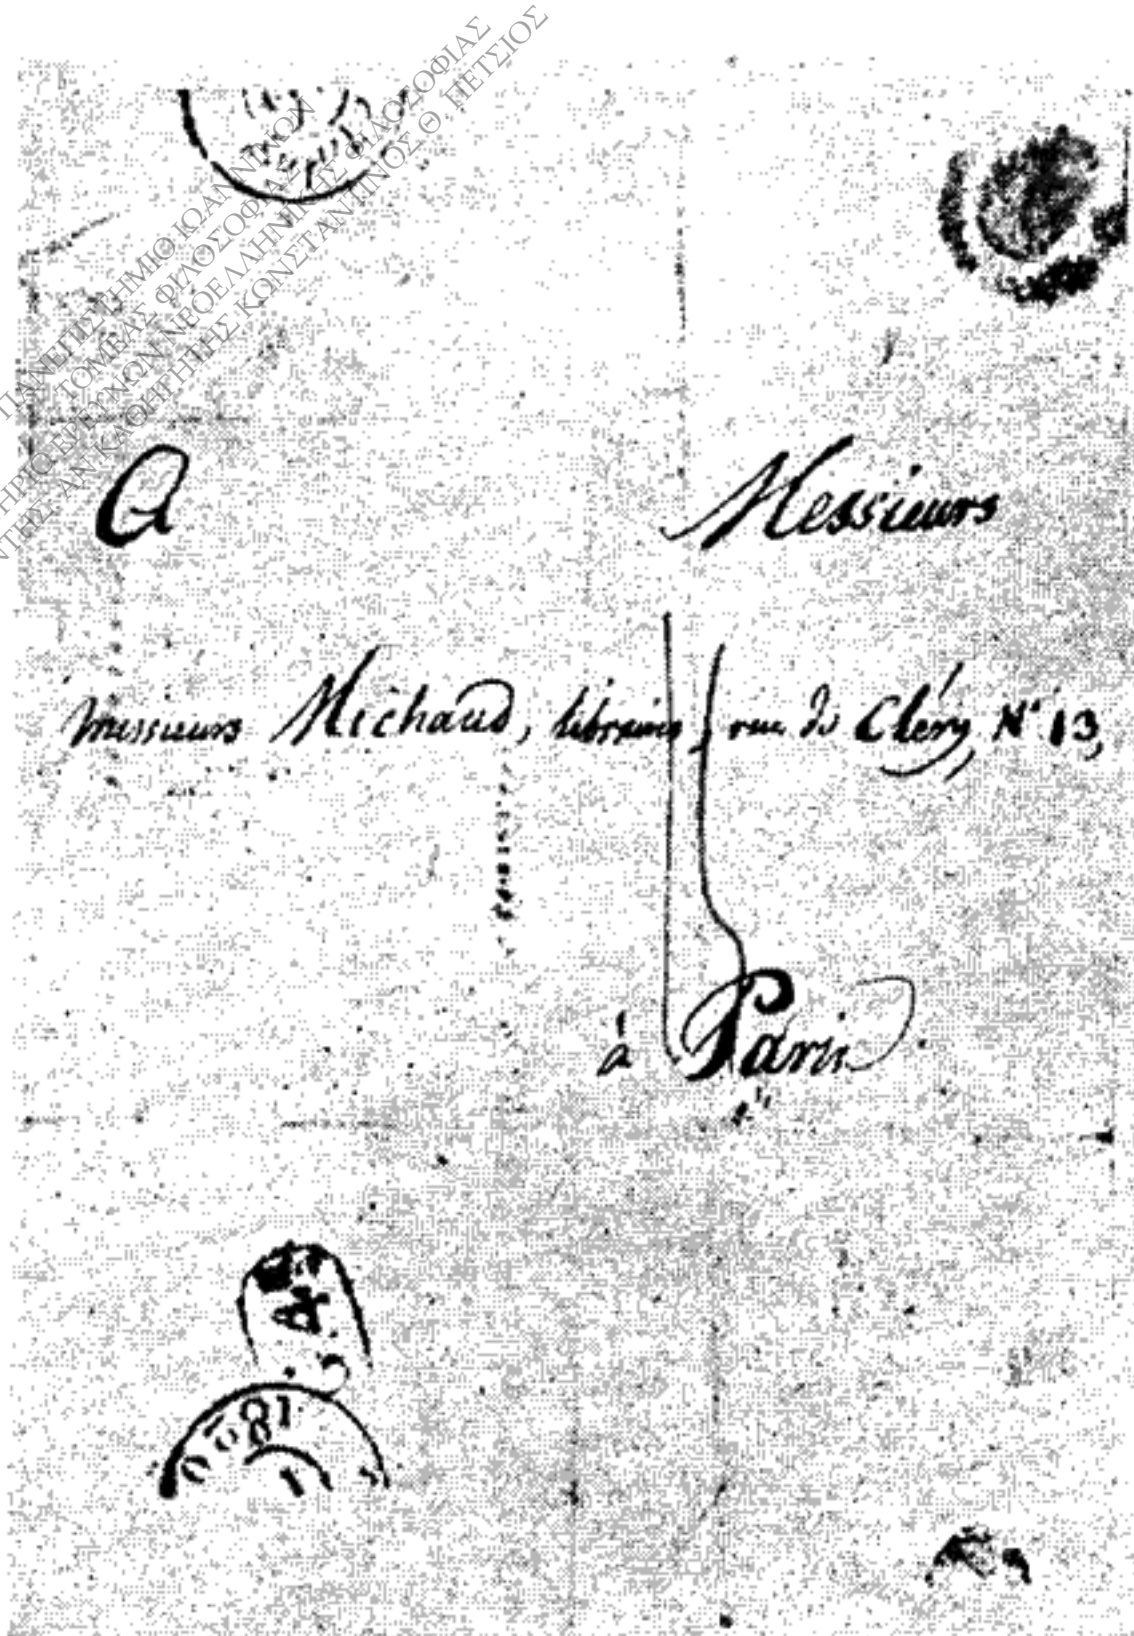 ΠΑΝΕΠΙΣΤΗΜΙΟ ΙΩΑΝΝΙΝΩΝ
ΤΟΜΕΑΣ ΦΙΛΟΣΟΦΙΑΣ
ΝΕΟΕΛΛΗΝΙΚΗΣ ΦΙΛΟΣΟΦΙΑΣ
ΚΑΘΗΓΗΤΗΣ ΚΩΝΣΤΑΝΤΙΝΟΣ Θ. ΠΕΤΣΙΟΣ
A Messieurs
Messieurs Michaud, libraires, rue de Cléry, N° 13,
à Paris
4